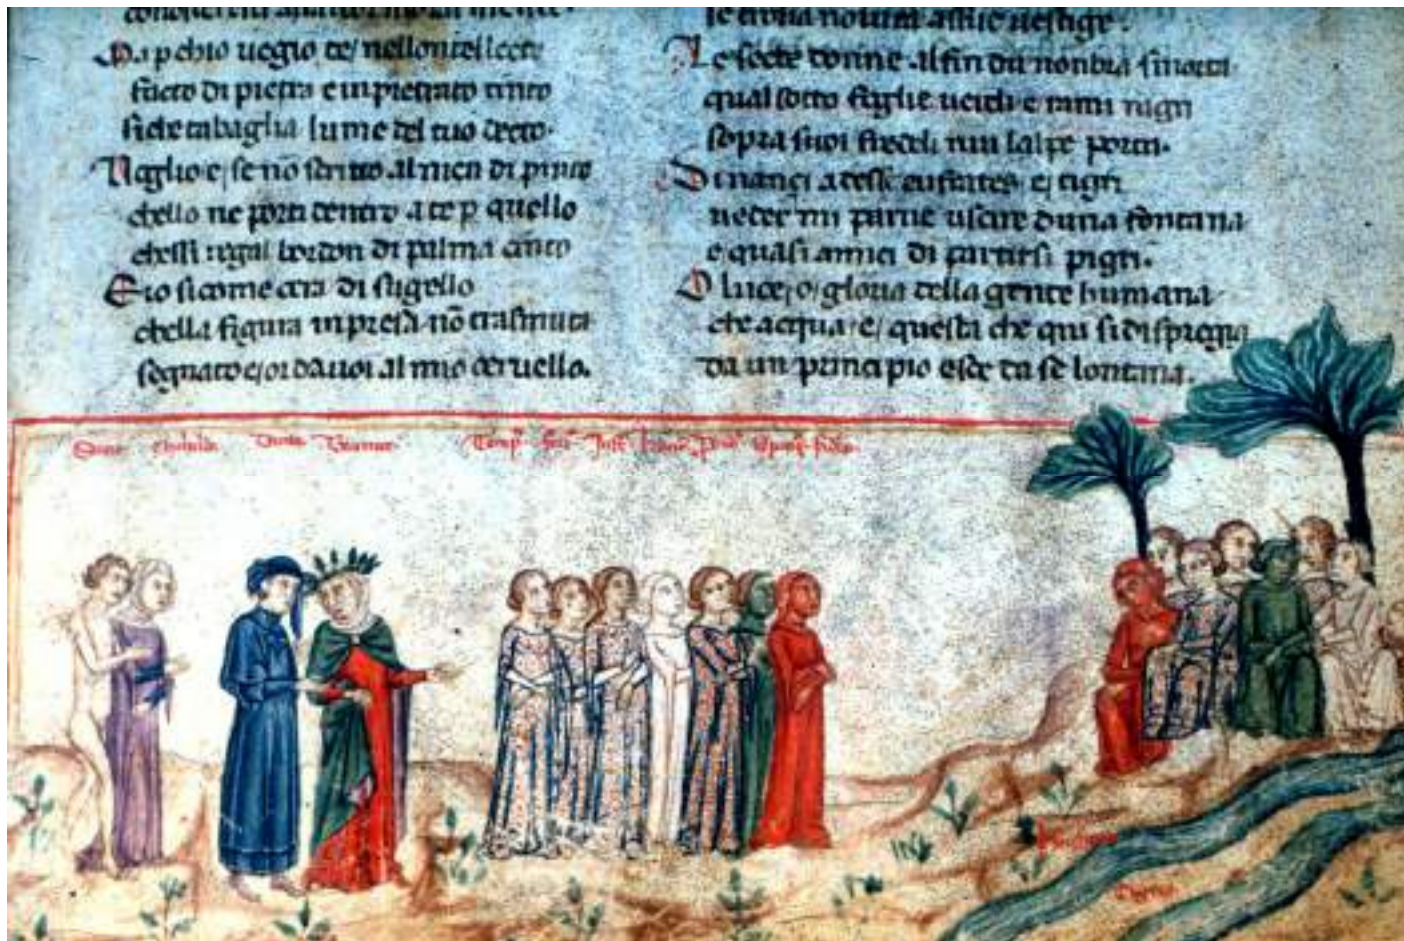 Ma p chio uegio te nellontellecto
facto di pietra e inpietrato tinto
siche tabaglia lume del tuo decto.
Uoglio e se nō scritto almen di pinto
chello ne porti dentro a te p quello
chessi regal bordon di palma cinto
E io sicome cera di sugello
chella figura inpresa nō trasmuta
segnato e or da uoi al mio ceruello.
se troua nouita assue uestige.
Le secte donne al fin du nonbra smorta
qual sotto foglie uerdi e rami nigri
sopra suoi freddi riui lalpe porta.
Dinançi ad esse eufrates e tigri
ueder mi parue uscire duna fontana
e quasi amici di partirsi pigri.
O luce o gloria della gente humana
che acqua e questa che qui si dispiega
da un principio e se da se lontana.
Dante
Temp Just